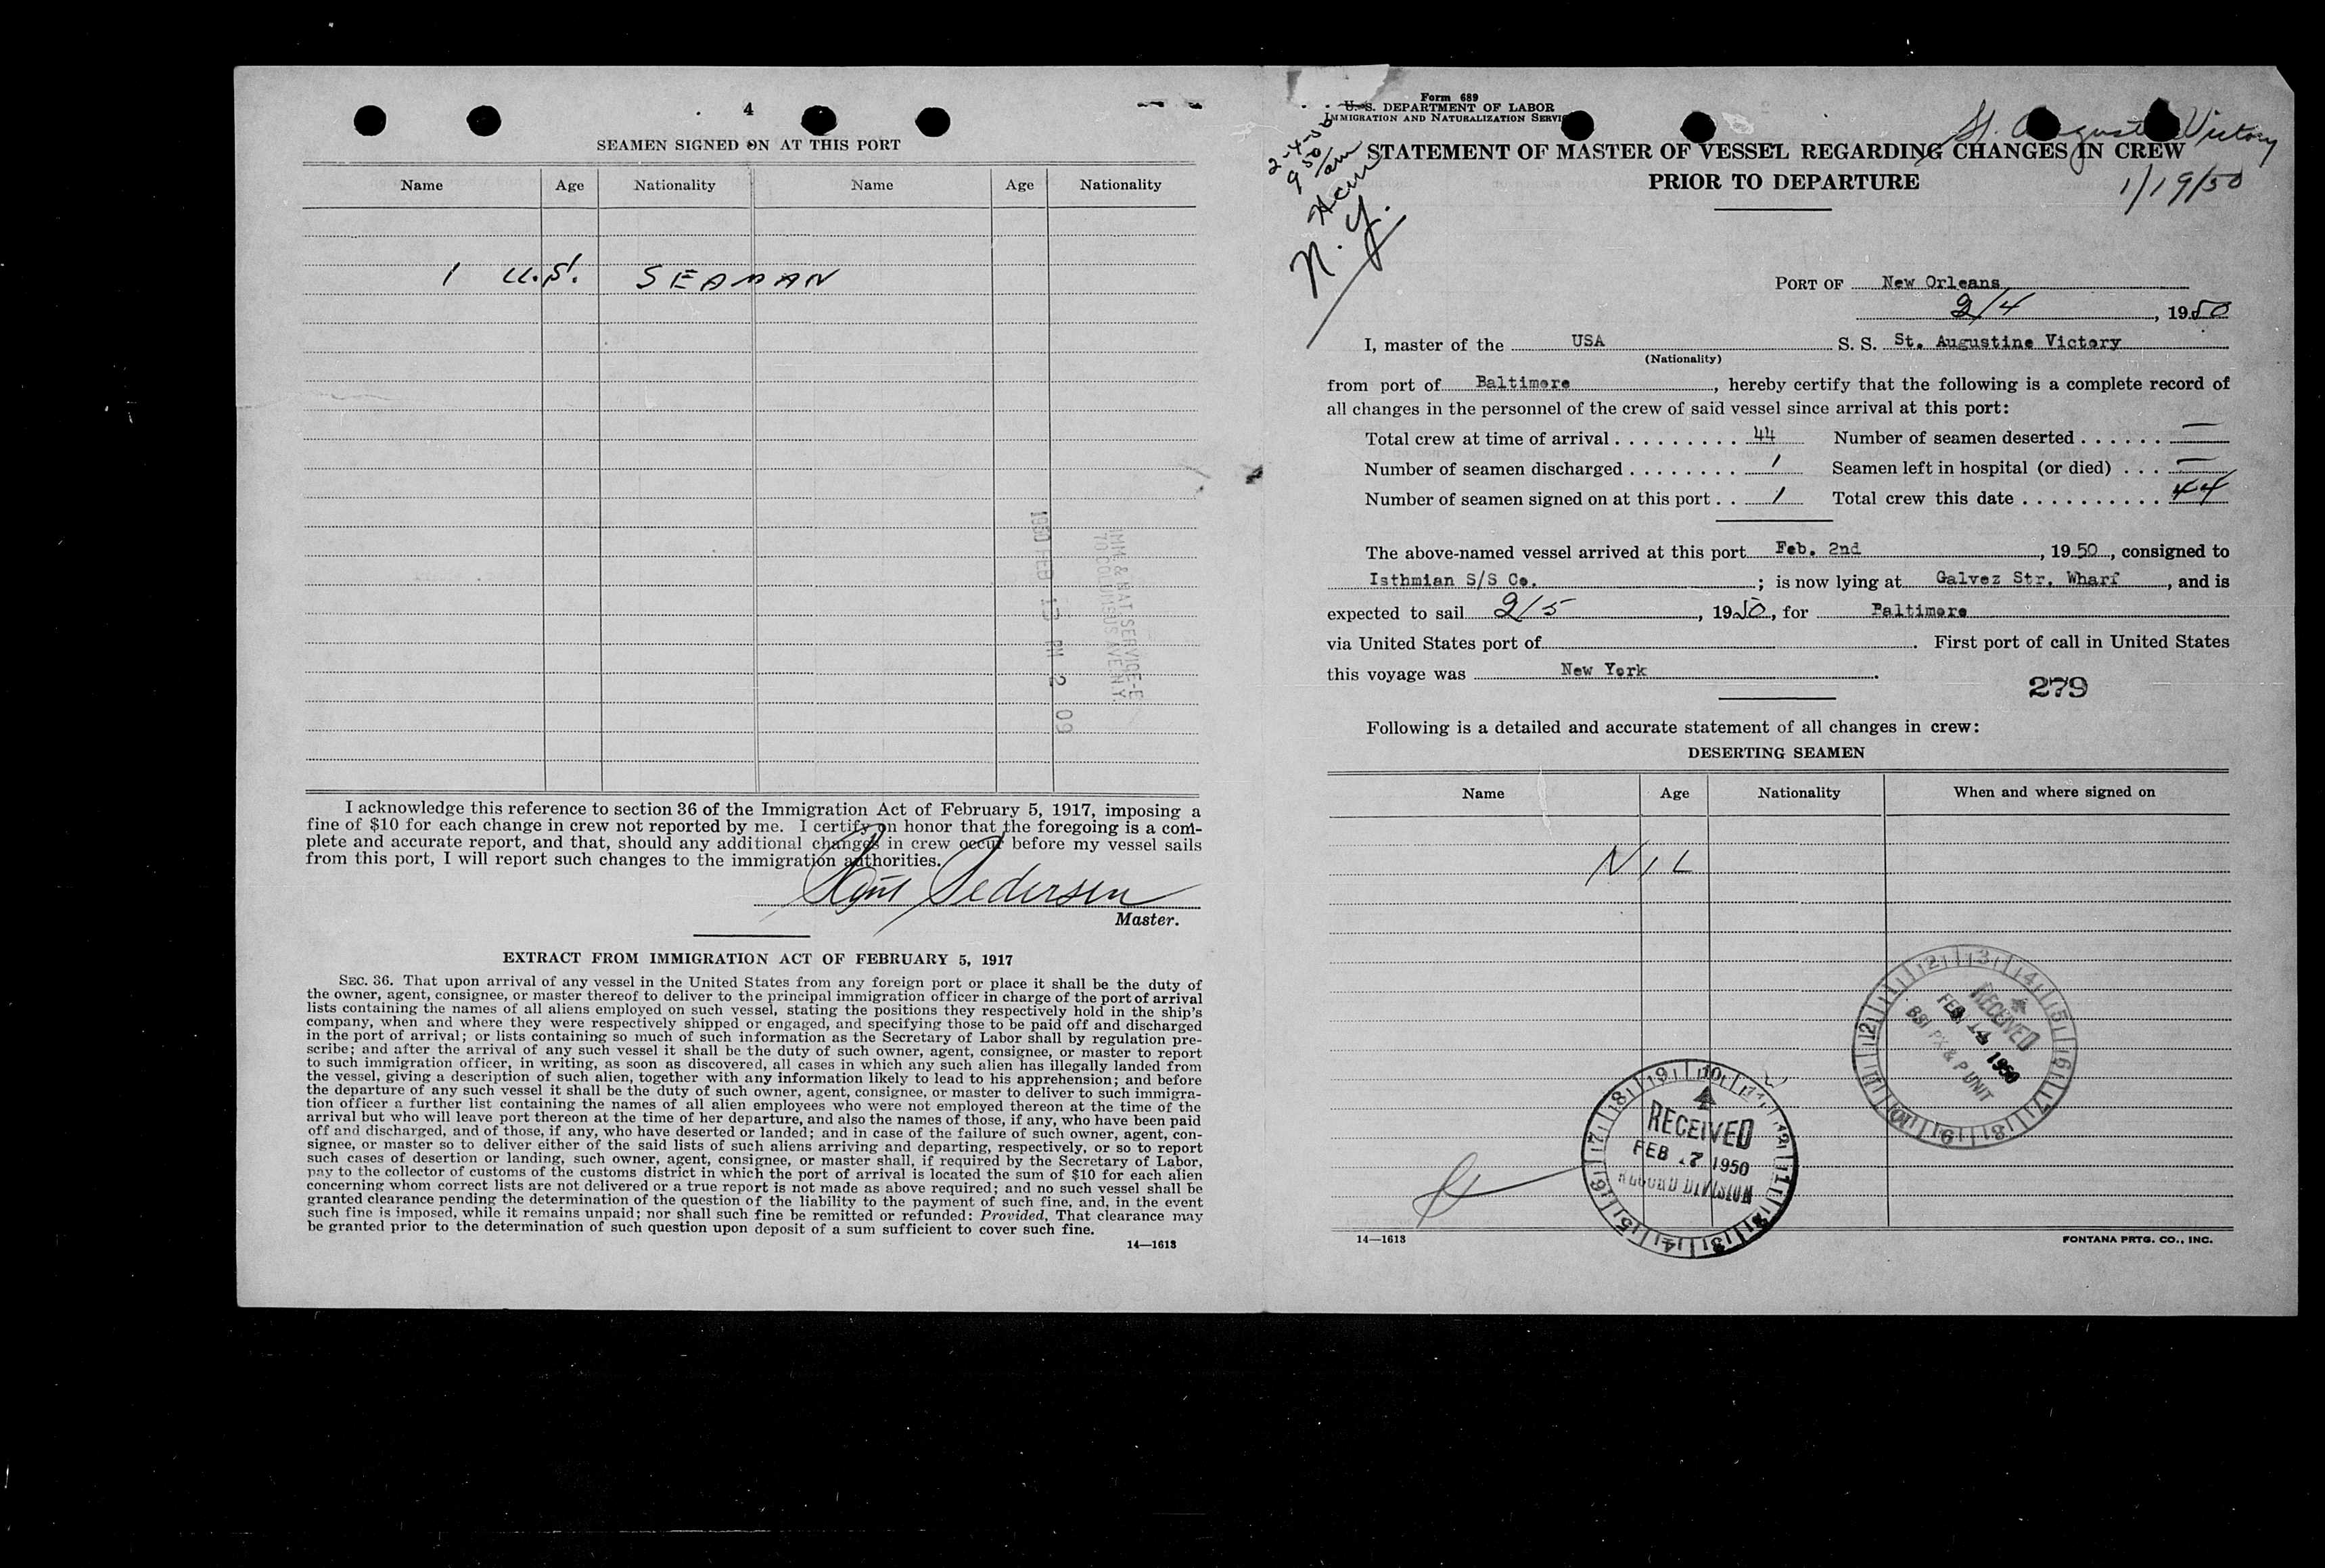 4
SEAMEN SIGNED ON AT THIS PORT
Name Age Nationality Name Age Nationality
1 U.S. SEAMAN
IMM & NAT SERVICE-E
70 COLUMBUS AVE N.Y.
1950 FEB 13 PM 2 09
I acknowledge this reference to section 36 of the Immigration Act of February 5, 1917, imposing a
fine of $10 for each change in crew not reported by me. I certify on honor that the foregoing is a com-
plete and accurate report, and that, should any additional changes in crew occur before my vessel sails
from this port, I will report such changes to the immigration authorities.
Pedersen
Master.
EXTRACT FROM IMMIGRATION ACT OF FEBRUARY 5, 1917
SEC. 36. That upon arrival of any vessel in the United States from any foreign port or place it shall be the duty of
the owner, agent, consignee, or master thereof to deliver to the principal immigration officer in charge of the port of arrival
lists containing the names of all aliens employed on such vessel, stating the positions they respectively hold in the ship's
company, when and where they were respectively shipped or engaged, and specifying those to be paid off and discharged
in the port of arrival; or lists containing so much of such information as the Secretary of Labor shall by regulation pre-
scribe; and after the arrival of any such vessel it shall be the duty of such owner, agent, consignee, or master to report
to such immigration officer, in writing, as soon as discovered, all cases in which any such alien has illegally landed from
the vessel, giving a description of such alien, together with any information likely to lead to his apprehension; and before
the departure of any such vessel it shall be the duty of such owner, agent, consignee, or master to deliver to such immigra-
tion officer a further list containing the names of all alien employees who were not employed thereon at the time of the
arrival but who will leave port thereon at the time of her departure, and also the names of those, if any, who have been paid
off and discharged, and of those, if any, who have deserted or landed; and in case of the failure of such owner, agent, con-
signee, or master so to deliver either of the said lists of such aliens arriving and departing, respectively, or so to report
such cases of desertion or landing, such owner, agent, consignee, or master shall, if required by the Secretary of Labor,
pay to the collector of customs of the customs district in which the port of arrival is located the sum of $10 for each alien
concerning whom correct lists are not delivered or a true report is not made as above required; and no such vessel shall be
granted clearance pending the determination of the question of the liability to the payment of such fine, and, in the event
such fine is imposed, while it remains unpaid; nor shall such fine be remitted or refunded: Provided, That clearance may
be granted prior to the determination of such question upon deposit of a sum sufficient to cover such fine.
14—1613
Form 689
U. S. DEPARTMENT OF LABOR
IMMIGRATION AND NATURALIZATION SERVICE
2-4-50
9 50 am
N.Y.
St. Augustine Victory
1/19/50
STATEMENT OF MASTER OF VESSEL REGARDING CHANGES IN CREW
PRIOR TO DEPARTURE
PORT OF New Orleans
2/4, 1950
I, master of the USA S. S. St. Augustine Victory
(Nationality)
from port of Baltimore, hereby certify that the following is a complete record of
all changes in the personnel of the crew of said vessel since arrival at this port:
Total crew at time of arrival . . . . . . . . . 44 Number of seamen deserted . . . . . . —
Number of seamen discharged . . . . . . . . 1 Seamen left in hospital (or died) . . . —
Number of seamen signed on at this port . . 1 Total crew this date . . . . . . . . . . 44
The above-named vessel arrived at this port Feb. 2nd, 1950, consigned to
Isthmian S/S Co.; is now lying at Galvez Str. Wharf, and is
expected to sail 2/5, 1950, for Baltimore
via United States port of . First port of call in United States
this voyage was New York.
279
Following is a detailed and accurate statement of all changes in crew:
DESERTING SEAMEN
Name Age Nationality When and where signed on
NIL
RECEIVED
FEB 14 1950
BSI PX & P UNIT
RECEIVED
FEB 17 1950
RECORD DIVISION
14—1613
FONTANA PRTG. CO., INC.